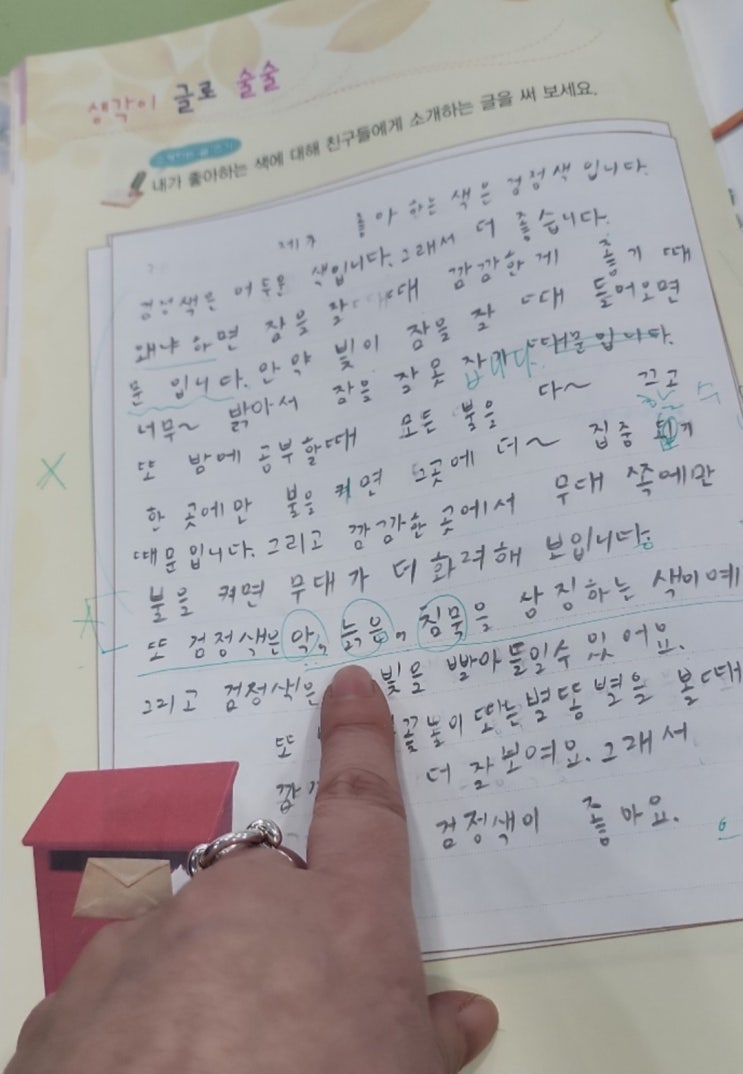 생각이 글로 술술
내가 좋아하는 색에 대해 친구들에게 소개하는 글을 써 보세요.
제가 좋아 하는 색은 검정색 입니다.
검정색은 어두운 색입니다. 그래서 더 좋습니다.
왜냐 하면 잠을 잘 때 깜깜한게 좋기 때
문 입니다. 안약 빛이 잠을 잘 때 들어오면
너무~ 밝아서 잠을 잘못 잡니다. 때문입니다.
또 밤에 공부할때 모든 불을 다~ 끄고
한 곳에만 불을 켜면 그곳에 더~ 집중 되기
때문입니다. 그리고 깜깜한 곳에서 무대 쪽에만
불을 켜면 무대가 더 화려해 보입니다.
또 검정색은 악, 늙은, 침묵을 상징하는 색이예
그리고 검정색은 빛을 빨아들일수 있어요.
또 꽃놀이 또는 별똥별을 볼때
더 잘보여요. 그래서
검정색이 좋아요.